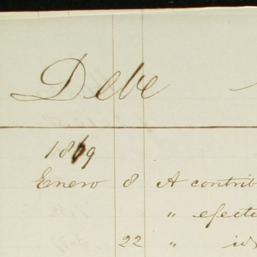 Debe
1869
Enero 8 A contrib
" efect
22 " id